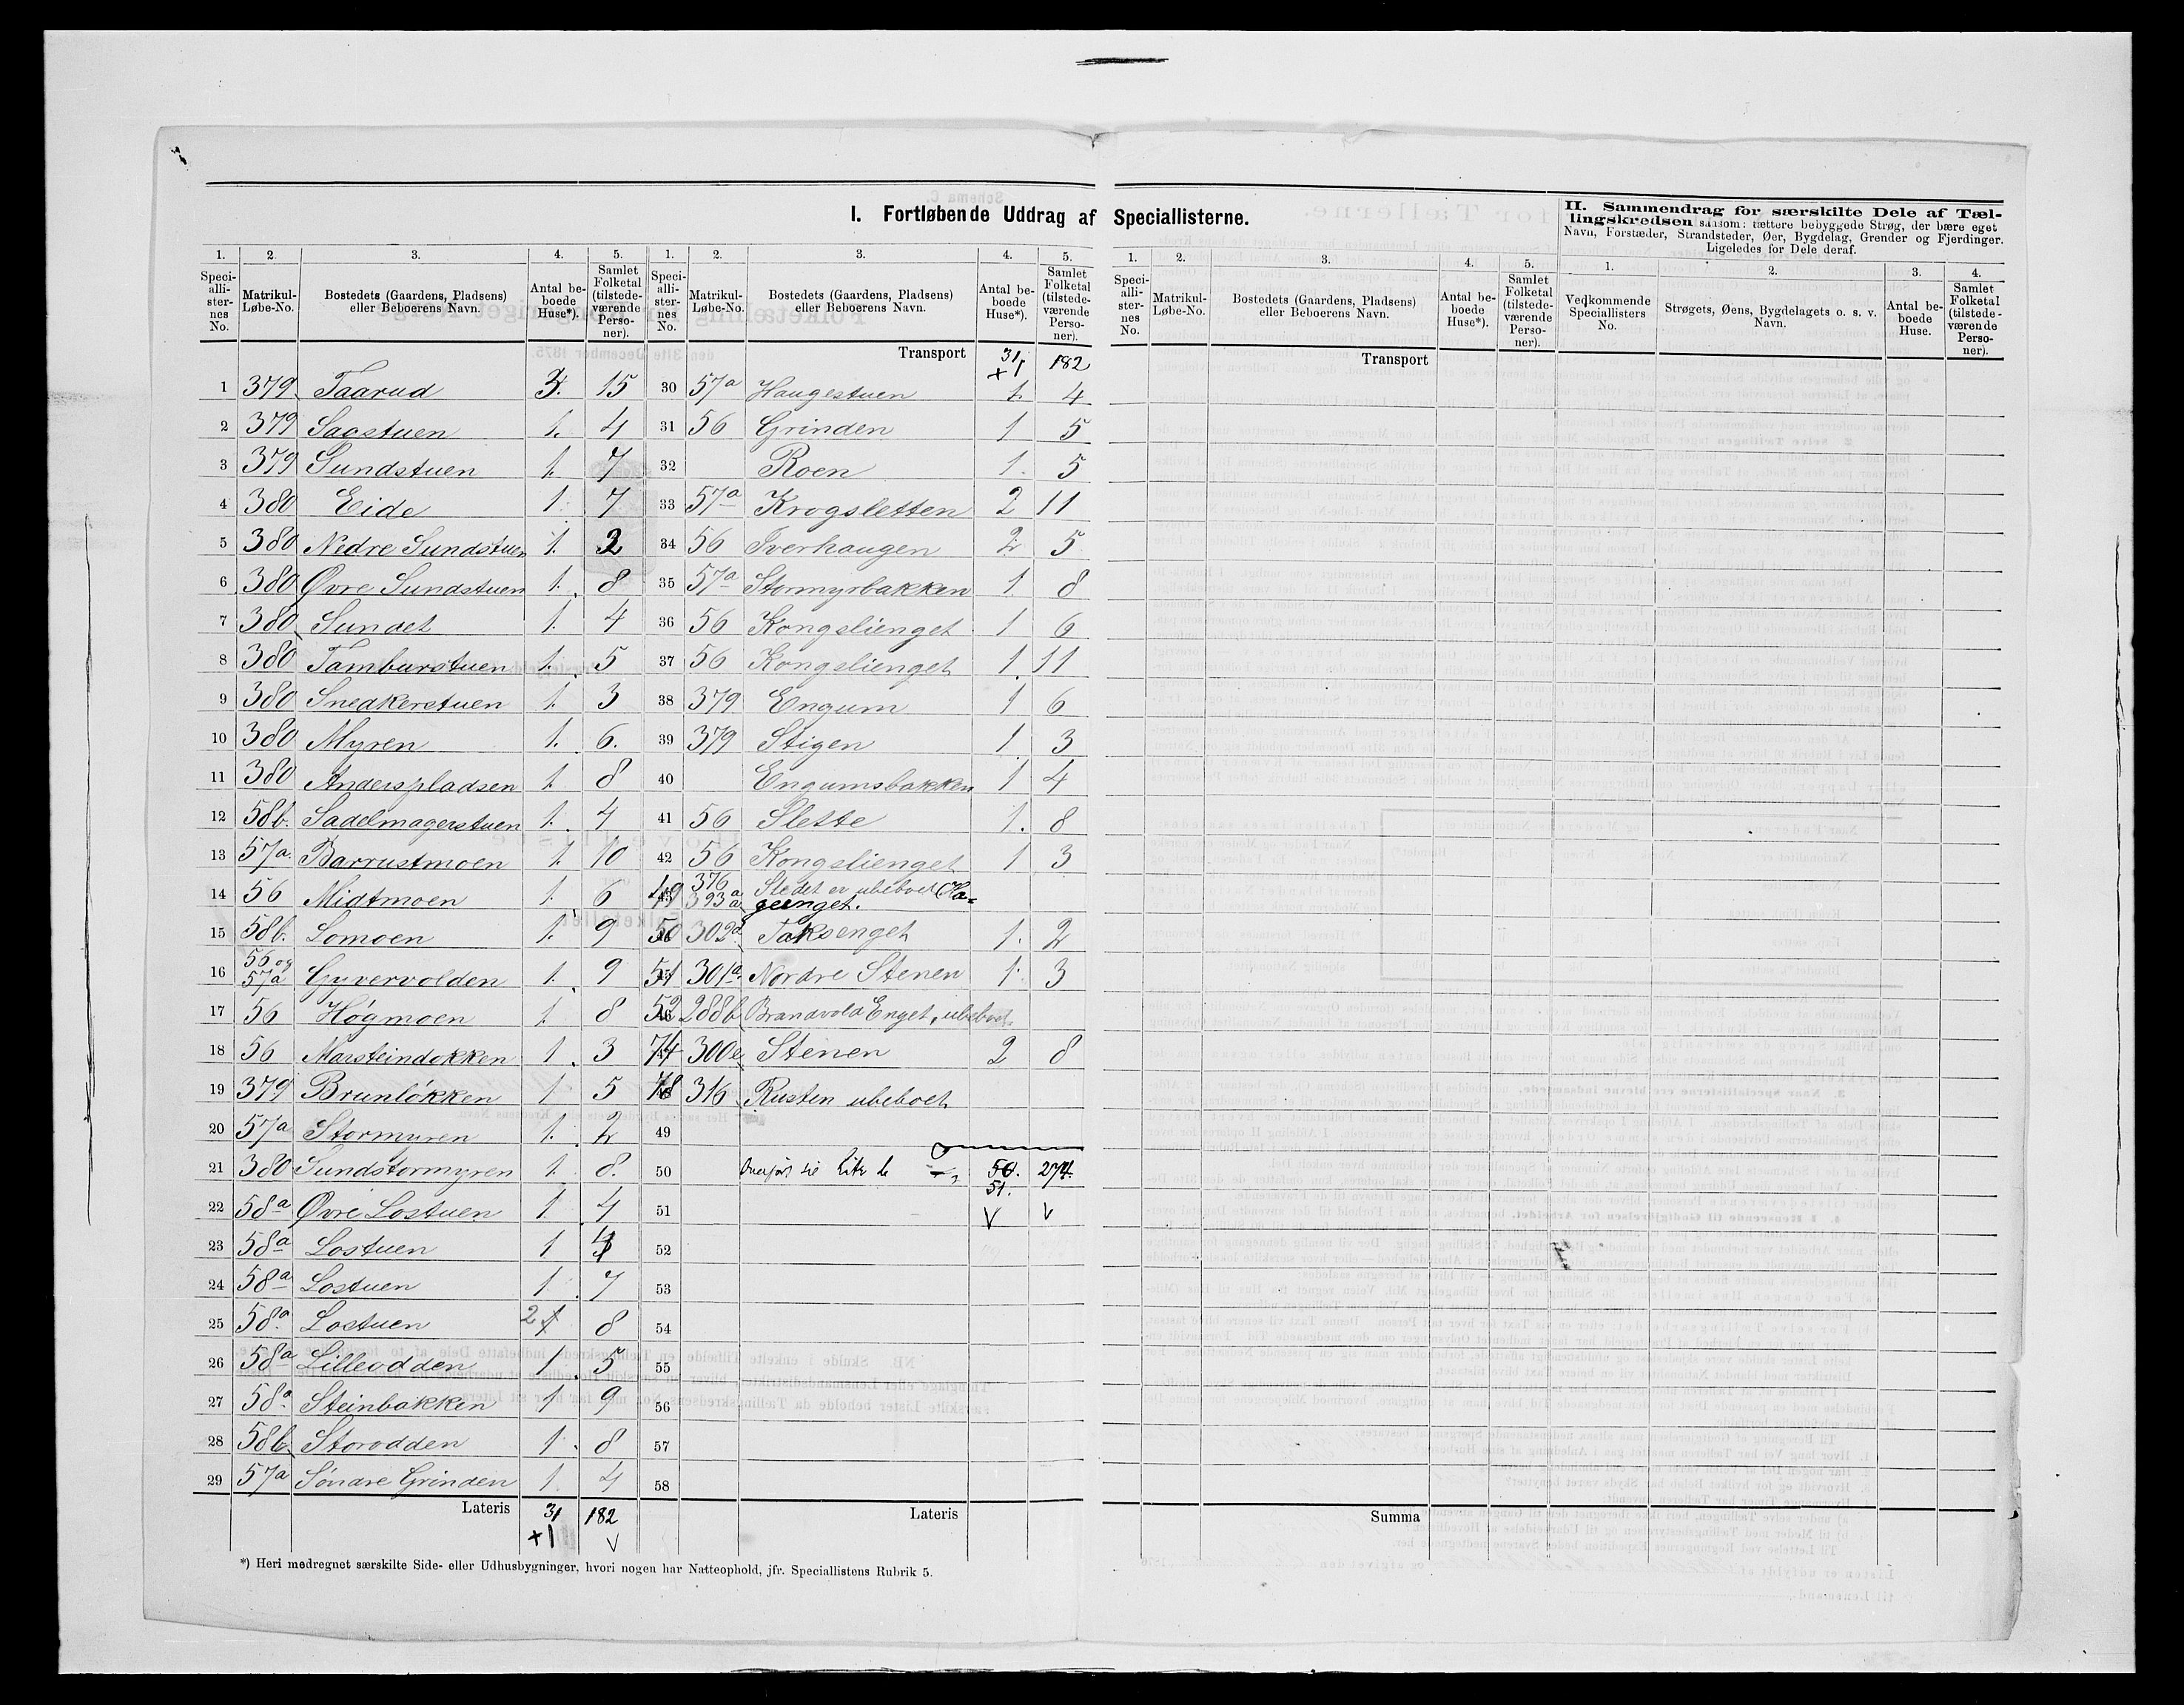 I. Fortløbende Uddrag af Speciallisterne.
II. Sammendrag for særskilte Dele af Tæl-
lingskredsen saasom: tættere bebyggede Strøg, der bære eget
Navn, Forstæder, Strandsteder, Øer, Bygdelag, Grender og Fjerdinger.
Ligeledes for Dele deraf.
1. 2. 3. 4. 5. 1. 2. 3. 4. 5. 1. 2. 3. 4. 5. 1. 2. 3. 4.
Speci-alli-ster-nes No. Matrikul-Løbe-No. Bostedets (Gaardens, Pladsens) eller Beboerens Navn. Antal be-boede Huse*). Samlet Folketal (tilstede-værende Perso-ner).
Speci-alli-ster-nes No. Matrikul-Løbe-No. Bostedets (Gaardens, Pladsens) eller Beboerens Navn. Antal be-boede Huse*). Samlet Folketal (tilstede-værende Perso-ner).
Speci-alli-ster-nes No. Matrikul-Løbe-No. Bostedets (Gaardens, Pladsens) eller Beboerens Navn. Antal be-boede Huse*). Samlet Folketal (tilstede-værende Perso-ner).
Vedkommende Speciallisters No. Strøgets, Øens, Bygdelagets o. s. v. Navn. Antal be-boede Huse. Samlet Folketal (tilstede-værende Perso-ner).
1 379 Taarud 3. 15
2 379 Sagstuen 1. 4
3 379 Sundstuen 1. 7
4 380 Eide 1 7
5 380 Nedre Sundstuen 1.
6 380 Øvre Sundstuen 1. 8
7 380 Sundet 1. 4
8 380 Tamburstuen 1. 5
9 380 Snedkerstuen 1. 3
10 380 Myren 1. 6.
11 380 Anderspladsen 1. 8
12 58b. Sadelmagerstuen 1. 4
13 57a. Barrustmoen 1. 10
14 56 Midtmoen 1. 6
15 58b. Lomoen 1. 9
16 56 og 57a Gyvervolden 1. 9
17 56 Høgmoen 1. 8
18 56 Marsteindokken 1. 3
19 379 Brunløkken 1 5
20 57a Stormyren 1. 2
21 380 Sundstormyren 1. 8.
22 58a Øvre Lostuen 1. 4
23 58a Lostuen 1
24 58a Lostuen 1. 7
25 58a Lostuen 2 1 8
26 58a Lilleodden 1. 5
27 58a. Steinbakken 1 9
28 58b Storodden 1. 8
29 57a Søndre Grinden 1. 4
Lateris 31 182
+1 V
Transport 31 182
+1
30 57a Haugestuen 1. 4
31 56 Grinden 1 5
32 Roen 1. 5
33 57a Krogsletten 2 11
34 56 Iverhaugen 2 5
35 57a Stormyrbakken 1 8
36 56 Kongslienget 1 6
37 56 Kongslienget 1. 11
38 379 Engum 1 6
39 379 Stigen 1 3
40 Engumsbakken 1 4
41 56 Slette 1. 8
42 56 Kongslienget 1 3
49 376 393a Stedet er ubeboet (Ha-
geenget.
50 302d. Taksenget 1. 2
51 301a Nordre Stenen 1. 3
52 288b Brandvold Enget, ubeboet.
74 300e Stenen 2 8
78 316 Rusten ubeboet
49
50 50. 274.
51.
51 V V
52
53
54
55
56
57
58
Lateris
Transport
Summa
*) Heri medregnet særskilte Side- eller Udhusbygninger, hvori nogen har Natteophold, jfr. Speciallistens Rubrik 5.